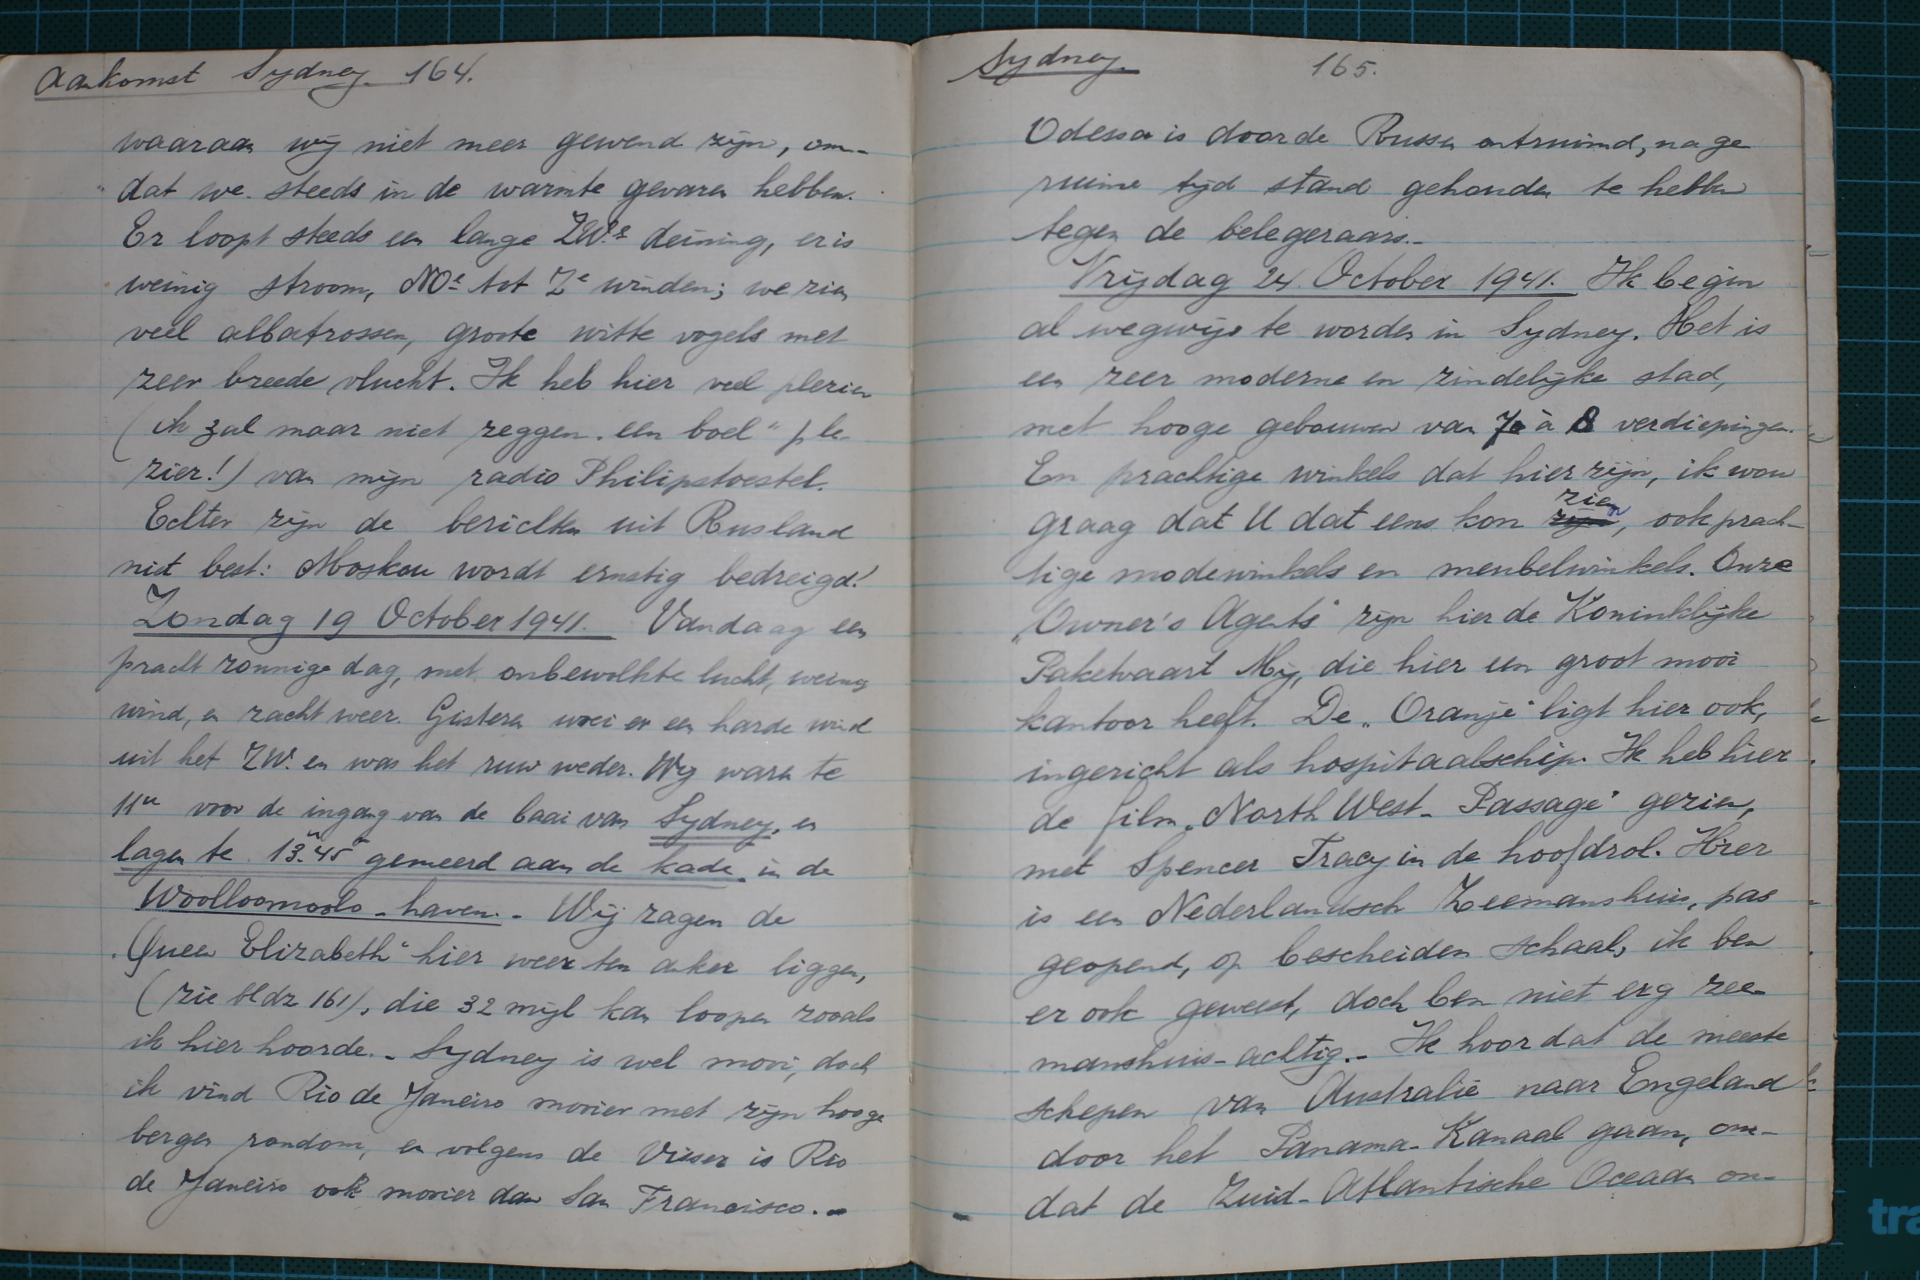 Aankomst Sydney. 164.
waaraan wij niet meer gewend zijn, om-
dat we steeds in de warmte gevaren hebben.
Er loopt steeds een lange ZW.e deining, er is
weinig stroom, NOe tot Ze winden; we zien
veel albatrossen, groote witte vogels met
zeer breede vlucht. Ik heb hier veel plezier
(ik zal maar niet zeggen „een boel" ple-
zier!) van mijn radio Philipstoestel.
Echter zijn de berichten uit Rusland
niet best: Moskou wordt ernstig bedreigd!
Zondag 19 October 1941. Vandaag een
pracht zonnige dag, met onbewolkte lucht, weinig
wind, en zacht weer. Gisteren woei er een harde wind
uit het ZW. en was het ruw weder. Wij waren te
11u voor de ingang van de baai van Sydney, en
lagen te 13.u45 gemeerd aan de kade, in de
Woolloomoolo-haven.- Wij zagen de
„Queen Elizabeth" hier weer ten anker liggen,
(zie bldz 161), die 32 mijl kan loopen zooals
ik hier hoorde.- Sydney is wel mooi, doch
ik vind Rio de Janeiro mooier met zijn hooge
bergen rondom, en volgens de Visser is Rio
de Janeiro ook mooier dan San Francisco.-
Sydney. 165.
Odessa is door de Russen ontruimd, na ge
ruime tijd stand gehouden te hebben
tegen de belegeraars.-
Vrijdag 24 October 1941. Ik begin
al wegwijs te worden in Sydney. Het is
een zeer moderne en zindelijke stad,
met hooge gebouwen van 7 à 8 verdiepingen.
En prachtige winkels dat hier zijn, ik wou
graag dat U dat eens kon zien, ook prach-
tige modewinkels en meubelwinkels. Onze
„Owner's Agents" zijn hier de Koninklijke
Paketvaart Mij, die hier een groot mooi
kantoor heeft. De „Oranje" ligt hier ook,
ingericht als hospitaalschip. Ik heb hier
de film „North West-Passage" gezien,
met Spencer Tracy in de hoofdrol. Hier
is een Nederlandsch Zeemanshuis, pas
geopend, op bescheiden schaal, ik ben
er ook geweest, doch ben niet erg zee-
manshuis-achtig.- Ik hoor dat de meeste
schepen van Australië naar Engeland
door het Panama-Kanaal gaan, om-
dat de Zuid-Atlantische Oceaan on-
tra